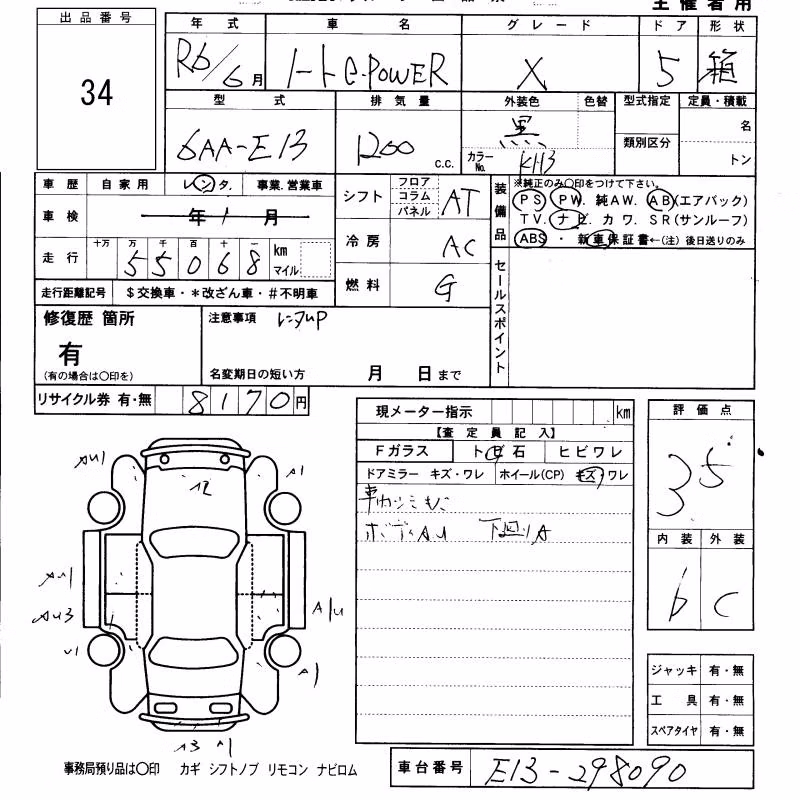 主催者用
出品番号
34
年式 車名 グレード ドア 形状
R6/6月 ノート e-POWER X 5 箱
型式 排気量 外装色 色替 型式指定 定員・積載
6AA-E13 1200 c.c. 黒 名
カラーNo. KH3 類別区分 トン
車歴 自家用 レンタ. 事業.営業車
車検 年 1 月
走行 十万 万 千 百 十 一 km マイル
5 5 0 6 8
走行距離記号 $交換車・*改ざん車・#不明車
シフト フロア コラム パネル AT
冷房 AC
燃料 G
装備品
※純正のみ○印をつけて下さい。
PS PW. 純AW. AB(エアバック)
TV. ナビ. カワ. SR(サンルーフ)
ABS ・ 新車保証書←(注) 後日送りのみ
セールスポイント
修復歴 箇所
有
(有の場合は○印を)
注意事項 レンタUP
名変期日の短い方 月 日まで
リサイクル券 有・無 8170円
現メーター指示 km
【査定員記入】
Fガラス ト飛石 ヒビワレ
ドアミラー キズ・ワレ ホイール(CP) キズ・ワレ
車内シミもこ
ボディAU 下廻りA
評価点
3.5
内装 外装
b C
ジャッキ 有・無
工具 有・無
スペアタイヤ 有・無
AU1 A1
12
AU1
AU3 A1U
U1 A1
A3 A1
事務局預り品は○印 カギ シフトノブ リモコン ナビロム
車台番号 E13-298090